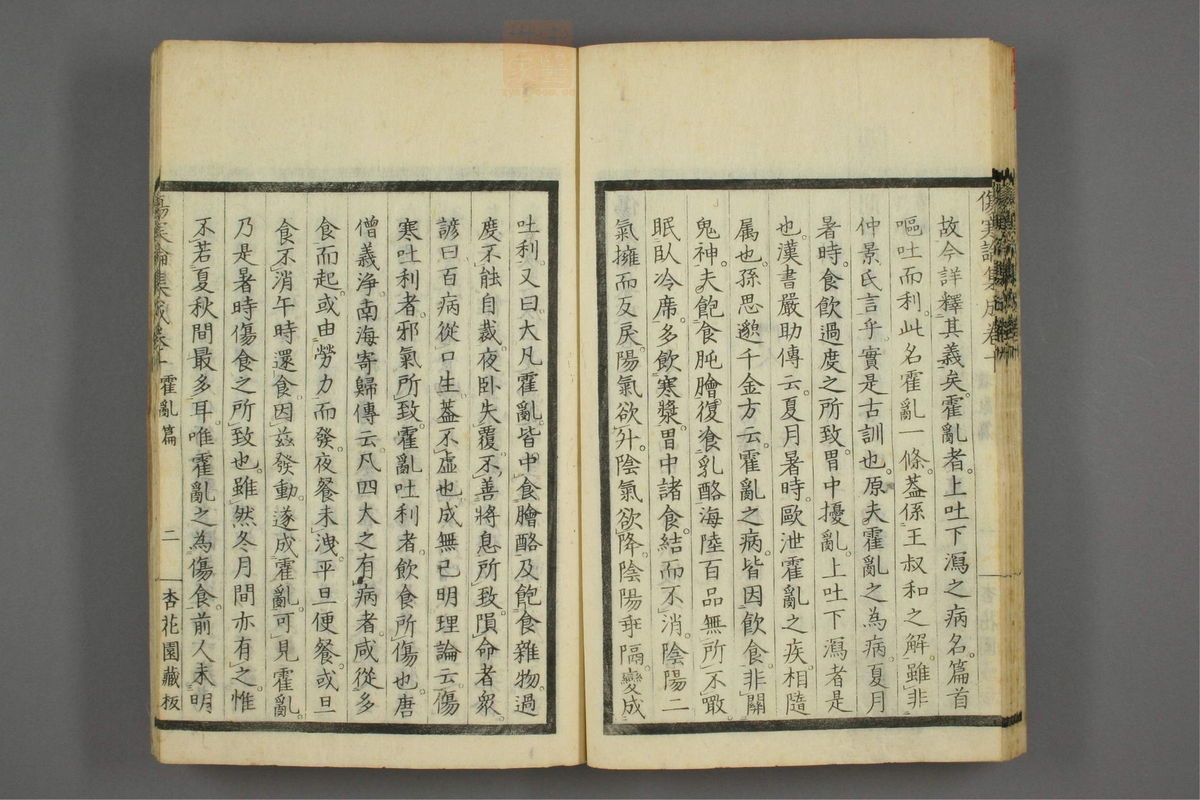 傷寒論集成卷十
故今詳釋其義矣。霍亂者。上吐下瀉之病名。篇首
嘔吐而利。此名霍亂一條。葢係王叔和之解。雖非
仲景氏言乎。實是古訓也。原夫霍亂之為病。夏月
暑時。食飲過度之所致。胃中擾亂。上吐下瀉者是
也。漢書嚴助傳云。夏月暑時。歐泄霍亂之疾。相隨
属也。孫思邈千金方云。霍亂之病。皆因飲食。非關
鬼神。夫飽食肫膾。復飡乳酪。海陸百品。無所不噉。
眠臥冷席。多飲寒漿。胃中諸食。結而不消。陰陽二
氣擁而反戾。陽氣欲升。陰氣欲降。陰陽乖隔。變成
吐利。又曰。大凡霍亂。皆中食膾酪。及飽食雜物。過
度不能自裁。夜卧失覆。不善將息所致。隕命者眾。
諺曰。百病從口生。葢不虛也。成無己明理論云。傷
寒吐利者。邪氣所致。霍亂吐利者。飲食所傷也。唐
僧義淨。南海寄歸傳云。凡四大之有病者。咸從多
食而起。或由勞力而發。夜餐未洩。平旦便餐。或旦
食不消。午時還食。因茲發動。遂成霍亂。可見霍亂。
乃是暑時傷食之所致也。雖然冬月間亦有之。惟
不若夏秋間最多耳。唯霍亂之為傷食。前人未明
傷寒論集成卷十 霍亂篇 二 杏花園藏板